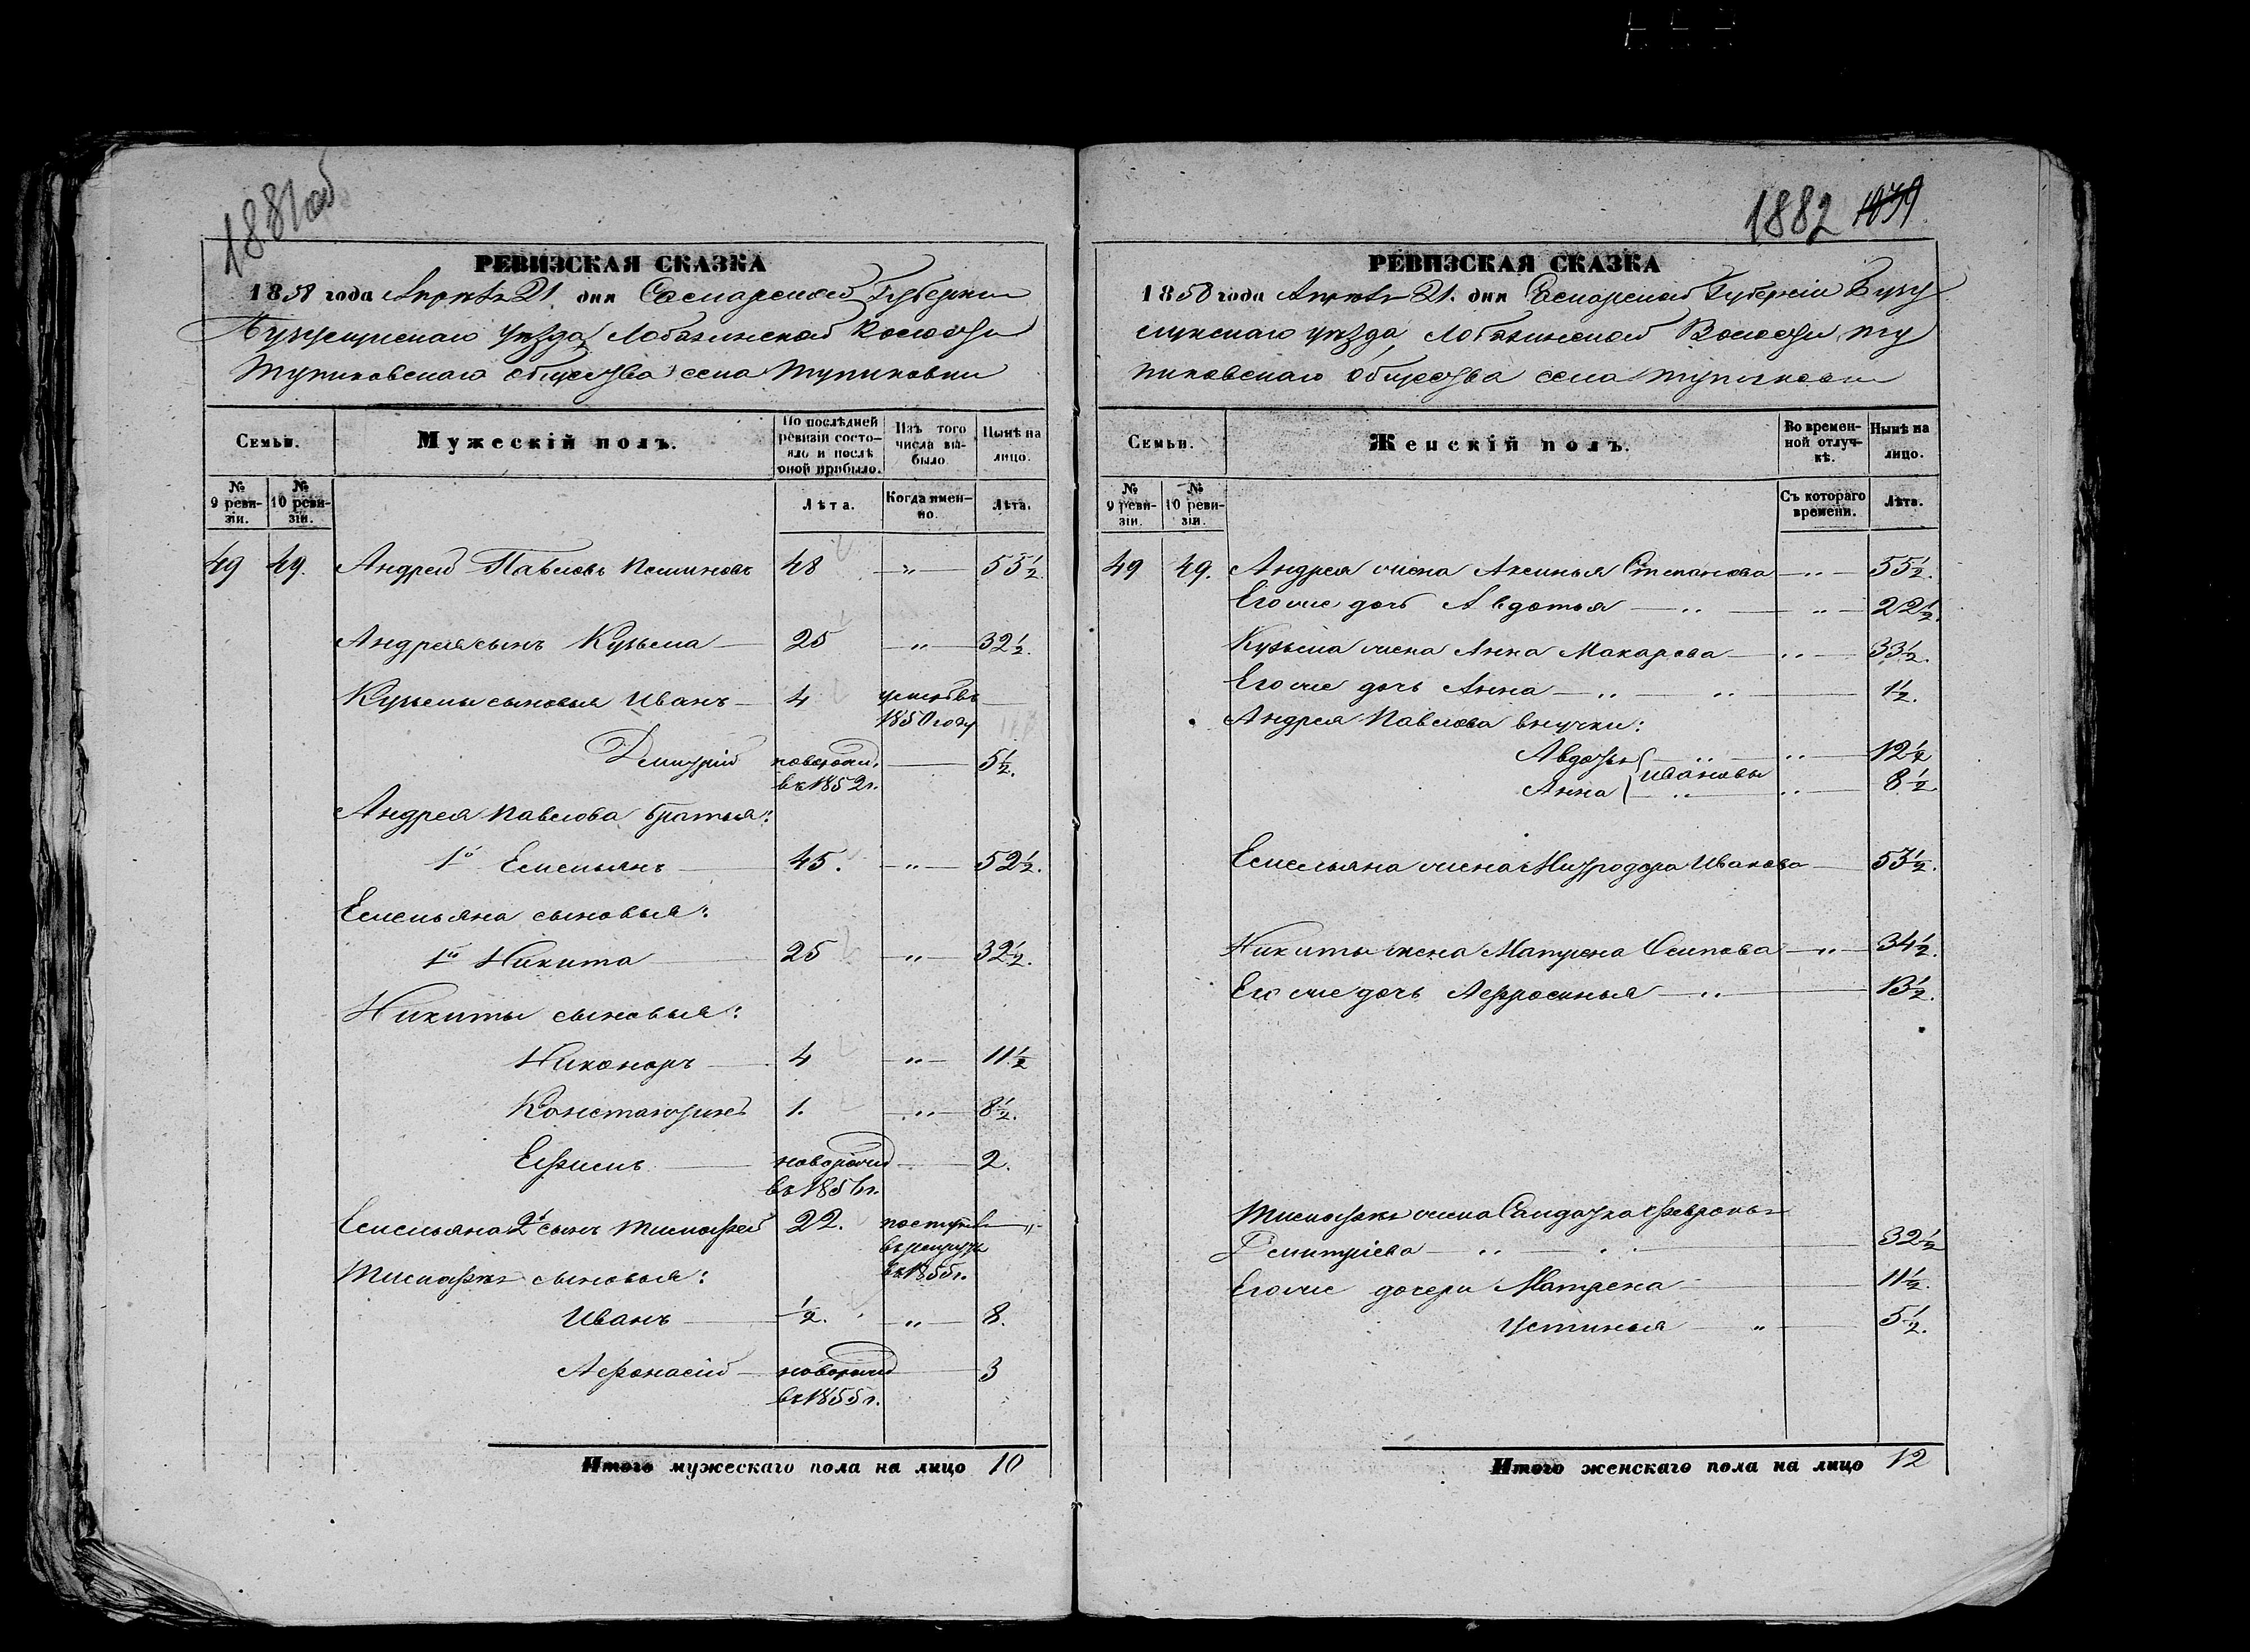 1881об
РЕВИЗСКАЯ СКАЗКА
1858 года Апрѣля 21. дня Самарской Губерніи
Бузулукскаго уѣзда, Лобазинской Волости
Тупиковскаго общества села Тупиковки
Семьи.
Мужескій полъ.
По послѣдней ревизіи состояло и послѣ оной прибыло.
Изъ того числа выбыло.
Нынѣ на лицо.
№ 9 ревизіи.
№ 10 ревизіи.
Лѣта.
Когда именно.
Лѣта.
49 49. Андрей Павловъ 48 — „ — 55½
Андрея сынъ Кузьма — 25 — „ — 32½.
Кузьмы сыновья Иванъ — 4 умеръ въ —
1850 году
Дмитрій новорожд. — 5½.
въ 1852 г.
Андрея Павлова братья:
1й Емельянъ — 45. — „ — 52½.
Емельяна сыновья:
1й Никита — 25 — „ — 32½.
Никиты сыновья:
Никоноръ — 4 — „ — 11½
Константинъ 1. — „ — 8½.
Ефимъ — новорожд — 2.
въ 1856 г.
Емельяна 2й сынъ Тимофей 22. поступ. — „
въ рекруты
въ 1855 г.
Тимофея сыновья:
Иванъ — ½. — „ — 8.
Афонасій — новорожд — 3
въ 1855 г.
Итого мужескаго пола на лицо 10
1882 1039
РЕВИЗСКАЯ СКАЗКА
1858 года Апрѣля 21. дня Самарской Губерніи Бузу
лукскаго уѣзда Лобазинской Волости, Ту
пиковскаго Общества села Тупиковки
Семьи.
Женскій полъ.
Во временной отлучкѣ.
Нынѣ на лицо.
№ 9 ревизіи.
№ 10 ревизіи.
Съ котораго времени.
Лѣта.
49 49. Андрея жена Аксинья Степанова — „ — 55½.
Его же дочь Авдотья — „ — „ — 22½.
Кузьма жена Анна Макарова — „ — 33½.
Его же дочь Анна — „ „ — 1½.
Андрея Павлова внучки:
Авдотья — „ — „ — 12½
Ивановы
Анна — „ — „ — 8½
Емельяна жена Митродора Иванова — 53½.
Никиты жена Матрена Осипова — „ — 34½.
Его же дочь Афросинья — „ — 13½.
Тимофея жена Солдатка Февронья
Дмитріева — „ — „ — 32½
Его же дочери Матрена — 11½.
Устинья — „ — 5½.
Итого женскаго пола на лицо 12